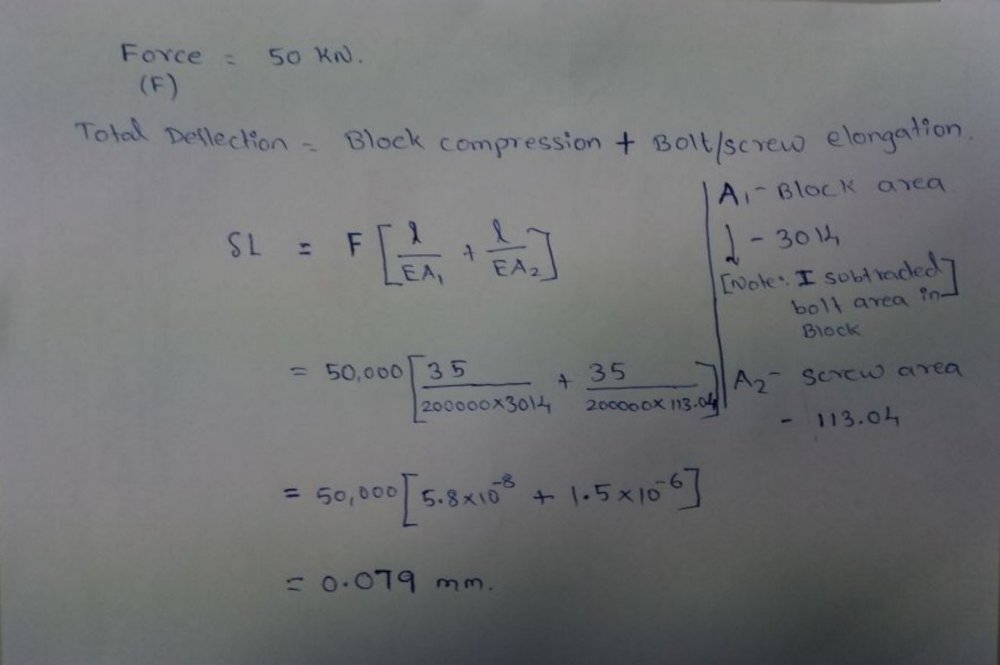 Force = 50 KN.
(F)
Total Deflection = Block compression + Bolt/screw elongation.
A₁ - Block area
↓ - 3014
[Note: I subtracted
bolt area in]
Block
δL = F [l/EA₁ + l/EA₂]
= 50,000 [35/200000×3014 + 35/200000×113.04]
A₂ - screw area
- 113.04
= 50,000 [5.8×10⁻⁸ + 1.5×10⁻⁶]
= 0.079 mm.